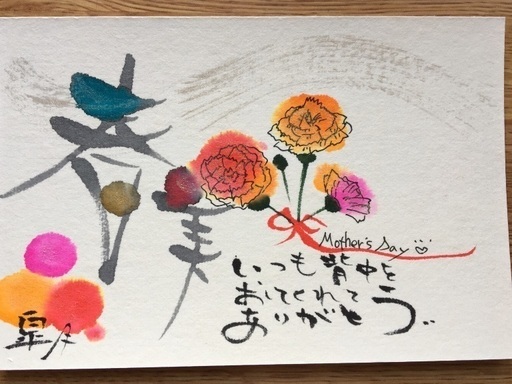 Mother's Day
いつも背中を
おしてくれて
ありがとう
皐月